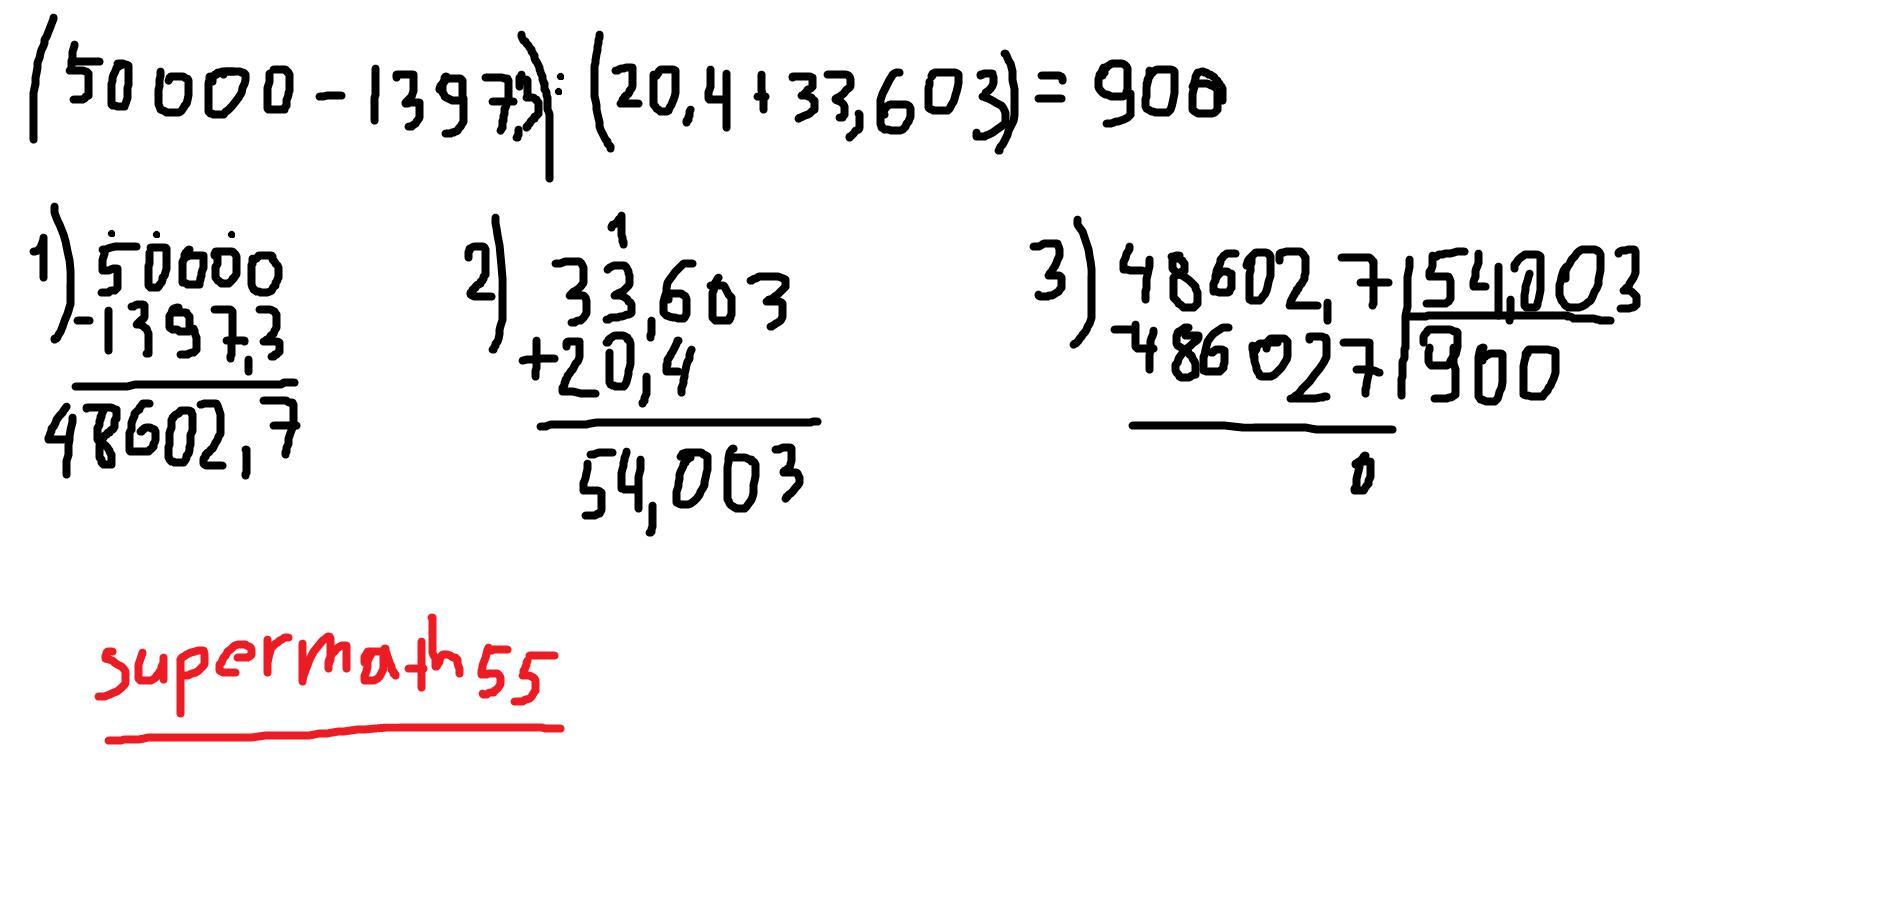 (50000 - 1397,3) : (20,4 + 33,603) = 900
1) 50000
- 1397,3
48602,7
2) 1
33,603
+ 20,4
54,003
3) 48602,7 | 54,003
- 486027 | 900
0
supermath55